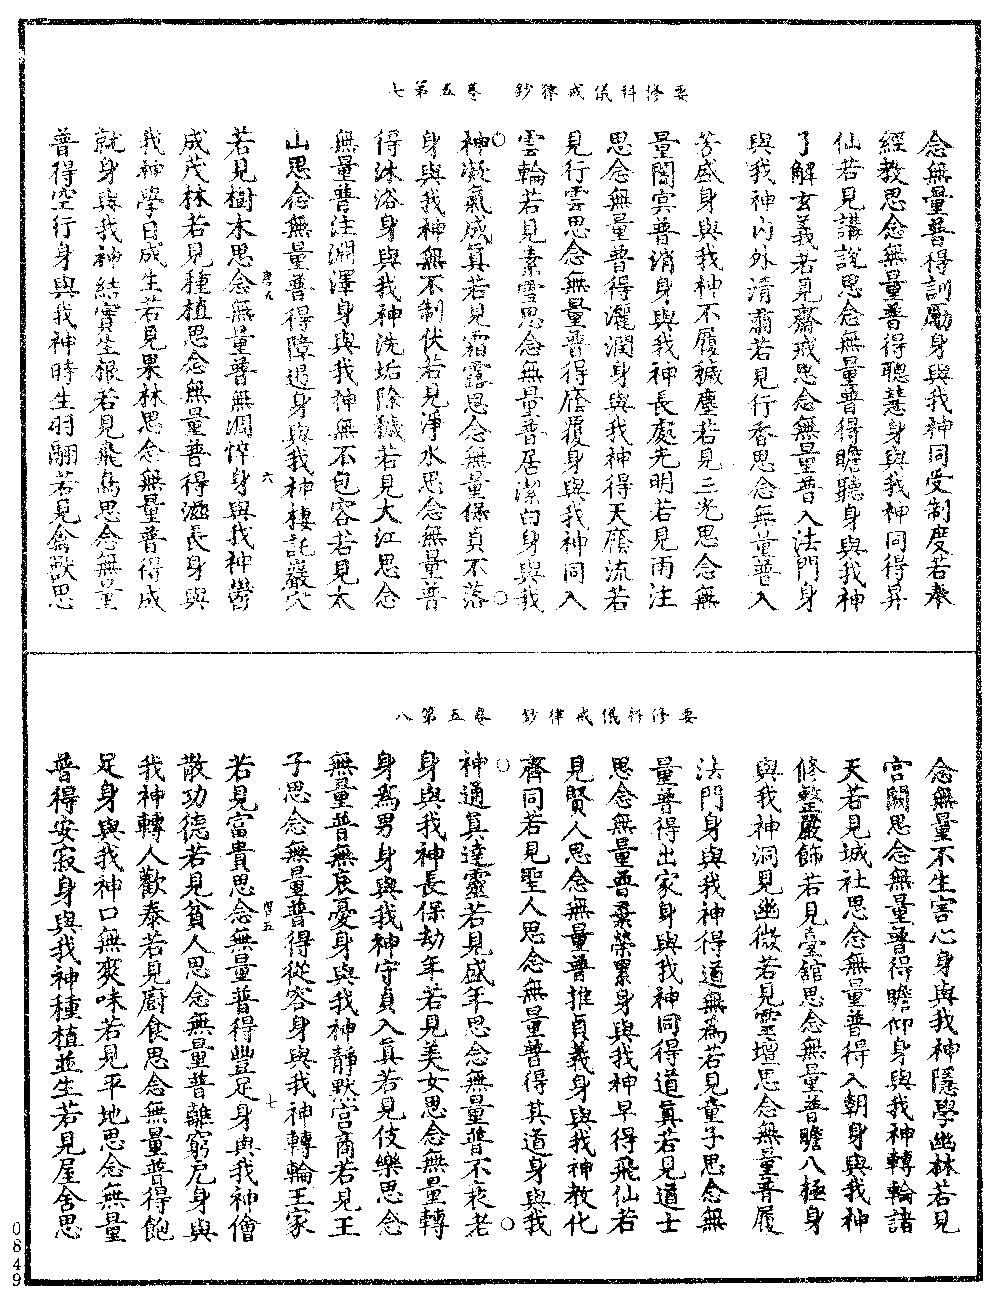 要修科儀戒律鈔　卷五第七
念無量普得訓勵身與我神同受制度若奉
經教思念無量普得聰慧身與我神同得昇
仙若見講說思念無量普得瞻聽身與我神
了解玄義若見齋戒思念無量普入法門身
與我神內外清肅若見行香思念無量普入
芳盛身與我神不履穢塵若見三光思念無
量闇冥普消身與我神長處光明若見雨注
思念無量普得灑潤身與我神得天廕流若
見行雲思念無量普得廕覆身與我神同入
雲輪若見素雪思念無量普居潔白身與我
神凝氣成真若見霜露思念無量保貞不落
身與我神無不制伏若見淨水思念無量普
得沐浴身與我神洗垢除穢若見大江思念
無量普注淵澤身與我神無不包容若見太
山思念無量普得障遏身與我神棲託巖穴
若見樹木思念無量普無凋悴身與我神鬱
成茂林若見種植思念無量普得滋長身與
我神學日成生若見果林思念無量普得成
就身與我神結實生根若見飛鳥思念無量
普得空行身與我神時生羽翮若見禽獸思
六
要修科儀戒律鈔　卷五第八
念無量不生害心身與我神隱學幽林若見
宮闕思念無量普得瞻仰身與我神轉輪諸
天若見城社思念無量普得入朝身與我神
修整嚴飾若見臺舘思念無量普瞻八極身
與我神洞見幽微若見靈壇思念無量普履
法門身與我神得道無為若見童子思念無
量普得出家身與我神同得道真若見道士
思念無量普棄榮累身與我神早得飛仙若
見賢人思念無量普推貞義身與我神教化
齊同若見聖人思念無量普得其道身與我
神通真達靈若見盛年思念無量普不衰老
身與我神長保劫年若見美女思念無量轉
身為男身與我神守貞入真若見伎樂思念
無量普無哀憂身與我神靜默宮商若見王
子思念無量普得從容身與我神轉輪王家
若見富貴思念無量普得豐足身與我神儈
散功德若見貧人思念無量普離窮厄身與
我神轉人歡泰若見廚食思念無量普得飽
足身與我神口無爽味若見平地思念無量
普得安寂身與我神種植並生若見屋舍思
七
0849